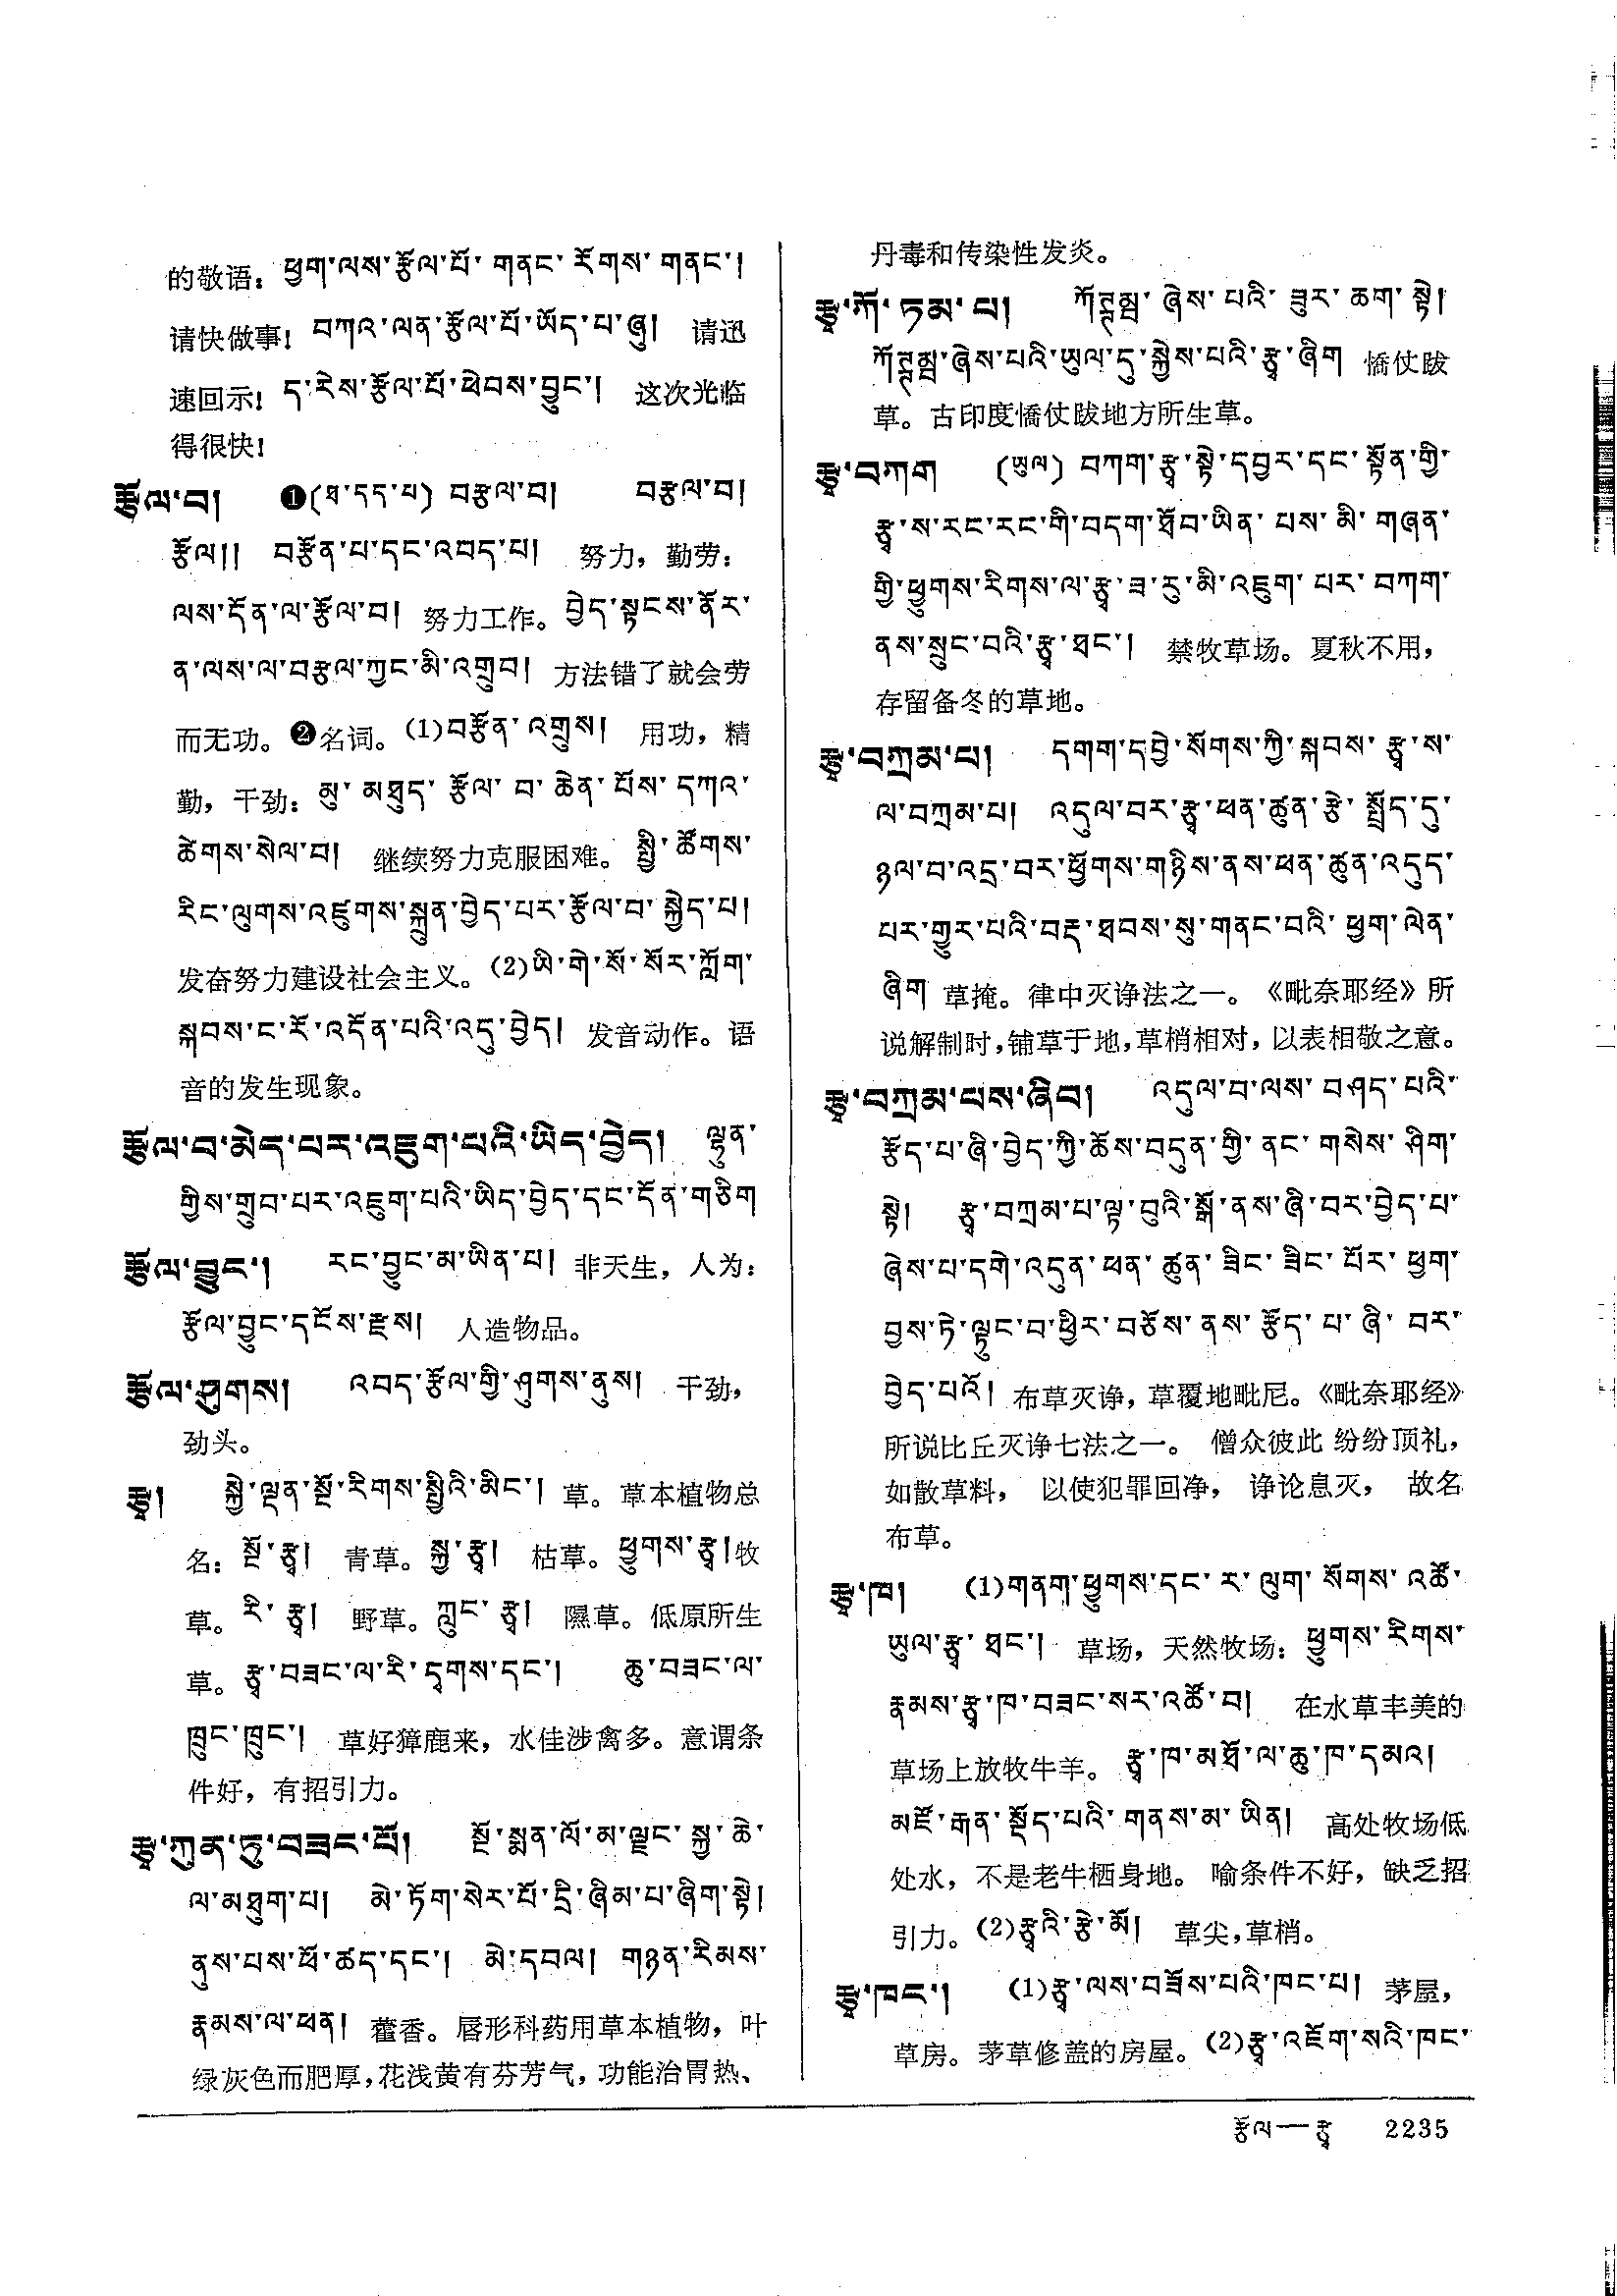 的敬语：ཕྱག་ལས་རྩོལ་པོ་གནང་རོགས་གནང་།
请快做事！བཀའ་ལན་རྩོལ་པོ་ཡོད་པ་ཞུ། 请迅
速回示！ད་རེས་རྩོལ་པོ་ཕེབས་བྱུང་། 这次光临
得很快！
རྩོལ་བ། ❶(ཐ་དད་པ) བརྩལ་བ། བརྩལ་བ།
རྩོལ།། བརྩོན་པ་དང་འབད་པ། 努力，勤劳：
ལས་དོན་ལ་རྩོལ་བ། 努力工作。བྱེད་སྟངས་ནོར་
ན་ལས་ལ་བརྩལ་ཀྱང་མི་འགྲུབ། 方法错了就会劳
而无功。❷名词。(1)བརྩོན་འགྲུས། 用功，精
勤，干劲：མུ་མཐུད་རྩོལ་བ་ཆེན་པོས་དཀའ་
ཚེགས་སེལ་བ། 继续努力克服困难。སྤྱི་ཚོགས་
རིང་ལུགས་འཛུགས་སྐྲུན་བྱེད་པར་རྩོལ་བ་སྐྱེད་པ།
发奋努力建设社会主义。(2)ཡི་གེ་སོ་སོར་ཀློག་
སྐབས་ང་རོ་འདོན་པའི་འདུ་བྱེད། 发音动作。语
音的发生现象。
རྩོལ་བ་མེད་པར་འཇུག་པའི་ཡིད་བྱེད། ལྷུན་
གྱིས་གྲུབ་པར་འཇུག་པའི་ཡིད་བྱེད་དང་དོན་གཅིག
རྩོལ་བྱུང་། རང་བྱུང་མ་ཡིན་པ། 非天生，人为：
རྩོལ་བྱུང་དངོས་རྫས། 人造物品。
རྩོལ་ཤུགས། འབད་རྩོལ་གྱི་ཤུགས་ནུས། 干劲，
劲头。
རྩྭ། སྐྱེ་ལྡན་སྔོ་རིགས་སྤྱིའི་མིང་། 草。草本植物总
名：སྔོ་རྩྭ། 青草。སྐྱ་རྩྭ། 枯草。ཕྱུགས་རྩྭ། 牧
草。རི་རྩྭ། 野草。ཀླུང་རྩྭ། 隰草。低原所生
草。རྩྭ་བཟང་ལ་རི་དྭགས་དང་། ཆུ་བཟང་ལ་
ཁྲུང་ཁྲུང་། 草好獐鹿来，水佳涉禽多。意谓条
件好，有招引力。
རྩྭ་ཀུན་ཏུ་བཟང་པོ། སྔོ་སྨན་ལོ་མ་ལྗང་སྐྱ་ཆེ་
ལ་མཐུག་པ། མེ་ཏོག་སེར་པོ་དྲི་ཞིམ་པ་ཞིག་སྟེ།
ནུས་པས་ཕོ་ཚད་དང་། མེ་དབལ། གཉན་རིམས་
རྣམས་ལ་ཕན། 藿香。唇形科药用草本植物，叶
绿灰色而肥厚，花浅黄有芬芳气，功能治胃热、
丹毒和传染性发炎。
རྩྭ་ཀོ་ཏམ་པ། ཞེས་པའི་ཟུར་ཆག་སྟེ།
ཞེས་པའི་ཡུལ་དུ་སྐྱེས་པའི་རྩྭ་ཞིག 憍仗跋
草。古印度憍仗跋地方所生草。
རྩྭ་བཀག (ཡུལ) བཀག་རྩྭ་སྟེ་དབྱར་དང་སྟོན་གྱི་
རྩྭ་ས་རང་རང་གི་བདག་ཐོབ་ཡིན་པས་མི་གཞན་
གྱི་ཕྱུགས་རིགས་ལ་རྩྭ་ཟ་རུ་མི་འཇུག་པར་བཀག་
ནས་སྲུང་བའི་རྩྭ་ཐང་། 禁牧草场。夏秋不用，
存留备冬的草地。
རྩྭ་བཀྲམ་པ། དགག་དབྱེ་སོགས་ཀྱི་སྐབས་རྩྭ་ས་
ལ་བཀྲམ་པ། འདུལ་བར་རྩྭ་ཕན་ཚུན་རྩེ་སྤྲོད་དུ་
ཉལ་བ་འདྲ་བར་ཕྱོགས་གཉིས་ནས་ཕན་ཚུན་འདུད་
པར་གྱུར་པའི་བརྡ་ཐབས་སུ་གནང་བའི་ཕྱག་ལེན་
ཞིག 草掩。律中灭诤法之一。《毗奈耶经》所
说解制时，铺草于地，草梢相对，以表相敬之意。
རྩྭ་བཀྲམ་པས་ཞིབ། འདུལ་བ་ལས་བཤད་པའི་
རྩོད་པ་ཞི་བྱེད་ཀྱི་ཆོས་བདུན་གྱི་ནང་གསེས་ཤིག་
སྟེ། རྩྭ་བཀྲམ་པ་ལྟ་བུའི་སྒོ་ནས་ཞི་བར་བྱེད་པ་
ཞེས་པ་དགེ་འདུན་ཕན་ཚུན་ཟིང་ཟིང་པོར་ཕྱག་
བྱས་ཏེ་ལྟུང་བ་ཕྱིར་བཅོས་ནས་རྩོད་པ་ཞི་བར་
བྱེད་པའོ། 布草灭诤，草覆地毗尼。《毗奈耶经》
所说比丘灭诤七法之一。僧众彼此纷纷顶礼，
如散草料，以使犯罪回净，诤论息灭，故名
布草。
རྩྭ་ཁ། (1)གནག་ཕྱུགས་དང་ར་ལུག་སོགས་འཚོ་
ཡུལ་རྩྭ་ཐང་། 草场，天然牧场：ཕྱུགས་རིགས་
རྣམས་རྩྭ་ཁ་བཟང་སར་འཚོ་བ། 在水草丰美的
草场上放牧牛羊。རྩྭ་ཁ་མཐོ་ལ་ཆུ་ཁ་དམའ།
མཛོ་རྒན་སྡོད་པའི་གནས་མ་ཡིན། 高处牧场低
处水，不是老牛栖身地。喻条件不好，缺乏招
引力。(2)རྩྭའི་རྩེ་མོ། 草尖，草梢。
རྩྭ་ཁང་། (1)རྩྭ་ལས་བཟོས་པའི་ཁང་པ། 茅屋，
草房。茅草修盖的房屋。(2)རྩྭ་འཇོག་སའི་ཁང་
རྩོལ—རྩྭ 2235